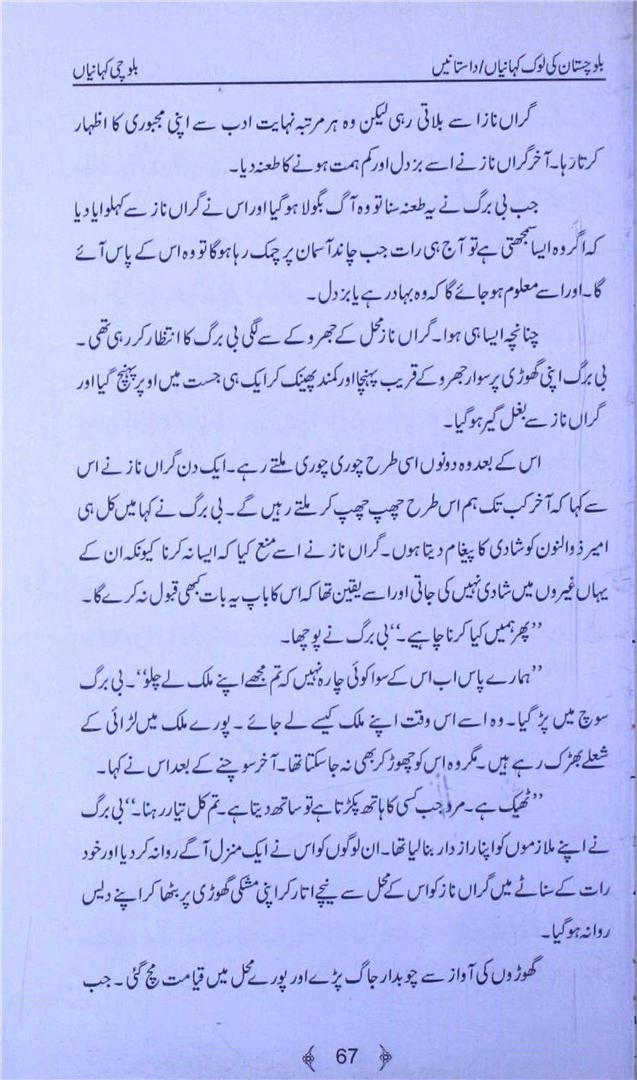 بلوچستان کی لوک کہانیاں/داستانیں
بلوچی کہانیاں
گراں ناز اسے بلاتی رہی لیکن وہ ہر مرتبہ نہایت ادب سے اپنی مجبوری کا اظہار
کرتا رہا۔ آخر گراں ناز نے اسے بزدل اور کم ہمت ہونے کا طعنہ دیا۔
جب بی برگ نے یہ طعنہ سنا تو وہ آگ بگولا ہو گیا اور اس نے گراں ناز سے کہلوایا دیا
کہ اگر وہ ایسا سمجھتی ہے تو آج ہی رات جب چاند آسمان پر چمک رہا ہوگا تو وہ اس کے پاس آئے
گا۔ اور اسے معلوم ہو جائے گا کہ وہ بہادر ہے یا بزدل۔
چنانچہ ایسا ہی ہوا۔ گراں ناز محل کے جھروکے سے لگی بی برگ کا انتظار کر رہی تھی۔
بی برگ اپنی گھوڑی پر سوار جھروکے قریب پہنچا اور کمند پھینک کر ایک ہی جست میں اوپر پہنچ گیا اور
گراں ناز سے بغل گیر ہو گیا۔
اس کے بعد وہ دونوں اسی طرح چوری چوری ملتے رہے۔ ایک دن گراں ناز نے اس
سے کہا کہ آخر کب تک ہم اس طرح چھپ چھپ کر ملتے رہیں گے۔ بی برگ نے کہا میں کل ہی
امیر ذوالنون کو شادی کا پیغام دیتا ہوں۔ گراں ناز نے اسے منع کیا کہ ایسا نہ کرنا کیونکہ ان کے
یہاں غیروں میں شادی نہیں کی جاتی اور اسے یقین تھا کہ اس کا باپ یہ بات کبھی قبول نہ کرے گا۔
’’پھر ہمیں کیا کرنا چاہیے۔‘‘ بی برگ نے پوچھا۔
’’ہمارے پاس اب اس کے سوا کوئی چارہ نہیں کہ تم مجھے اپنے ملک لے چلو‘‘۔ بی برگ
سوچ میں پڑ گیا۔ وہ اسے اس وقت اپنے ملک کیسے لے جائے۔ پورے ملک میں لڑائی کے
شعلے بھڑک رہے ہیں۔ مگر وہ اس کو چھوڑ کر بھی نہ جا سکتا تھا۔ آخر سوچنے کے بعد اس نے کہا۔
’’ٹھیک ہے۔ مرد جب کسی کا ہاتھ پکڑتا ہے تو ساتھ دیتا ہے۔ تم کل تیار رہنا۔‘‘ بی برگ
نے اپنے ملازموں کو اپنا راز دار بنا لیا تھا۔ ان لوگوں کو اس نے ایک منزل آگے روانہ کر دیا اور خود
رات کے سناٹے میں گراں ناز کو اس کے محل سے نیچے اتار کر اپنی مشکی گھوڑی پر بٹھا کر اپنے دیس
روانہ ہو گیا۔
گھوڑوں کی آواز سے چوبدار جاگ پڑے اور پورے محل میں قیامت مچ گئی۔ جب
67